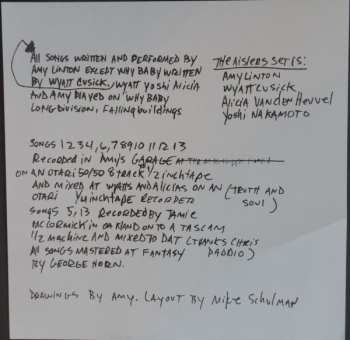 All SONGS WRITTEN AND PERFORMED BY
AMY LINTON EXCEPT WHY BABY WRITTEN
BY WYATT CUSICK, WYATT YOSHI ALICIA
AND AMY PLAYED ON WHY BABY
LONG DIVISION, FALLING BUILDINGS
The AISLERS SET IS:
AMY LINTON
WYATT CUSICK
ALICIA VANDEN HEUVEL
YOSHI NAKAMOTO
SONGS 1 2 3 4, 6, 7 8 9 10 11 12 13
RECORDED IN AMY'S GARAGE
ON AN OTARI 50/50 8 TRACK 1/2 INCH TAPE
AND MIXED AT WYATTS AND ALICIAS ON AN (TRUTH AND
OTARI 1/4 INCH TAPE RECORDER SOUL)
SONGS 5, 13 RECORDED BY JAMIE
MCCORMICK IN OAKLAND ON TO A TASCAM
1/2 MACHINE AND MIXED TO DAT (THANKS CHRIS
All SONGS MASTERED AT FANTASY DADDIO)
BY GEORGE HORN.
DRAWINGS BY AMY. LAYOUT BY MIKE SCHULMAN